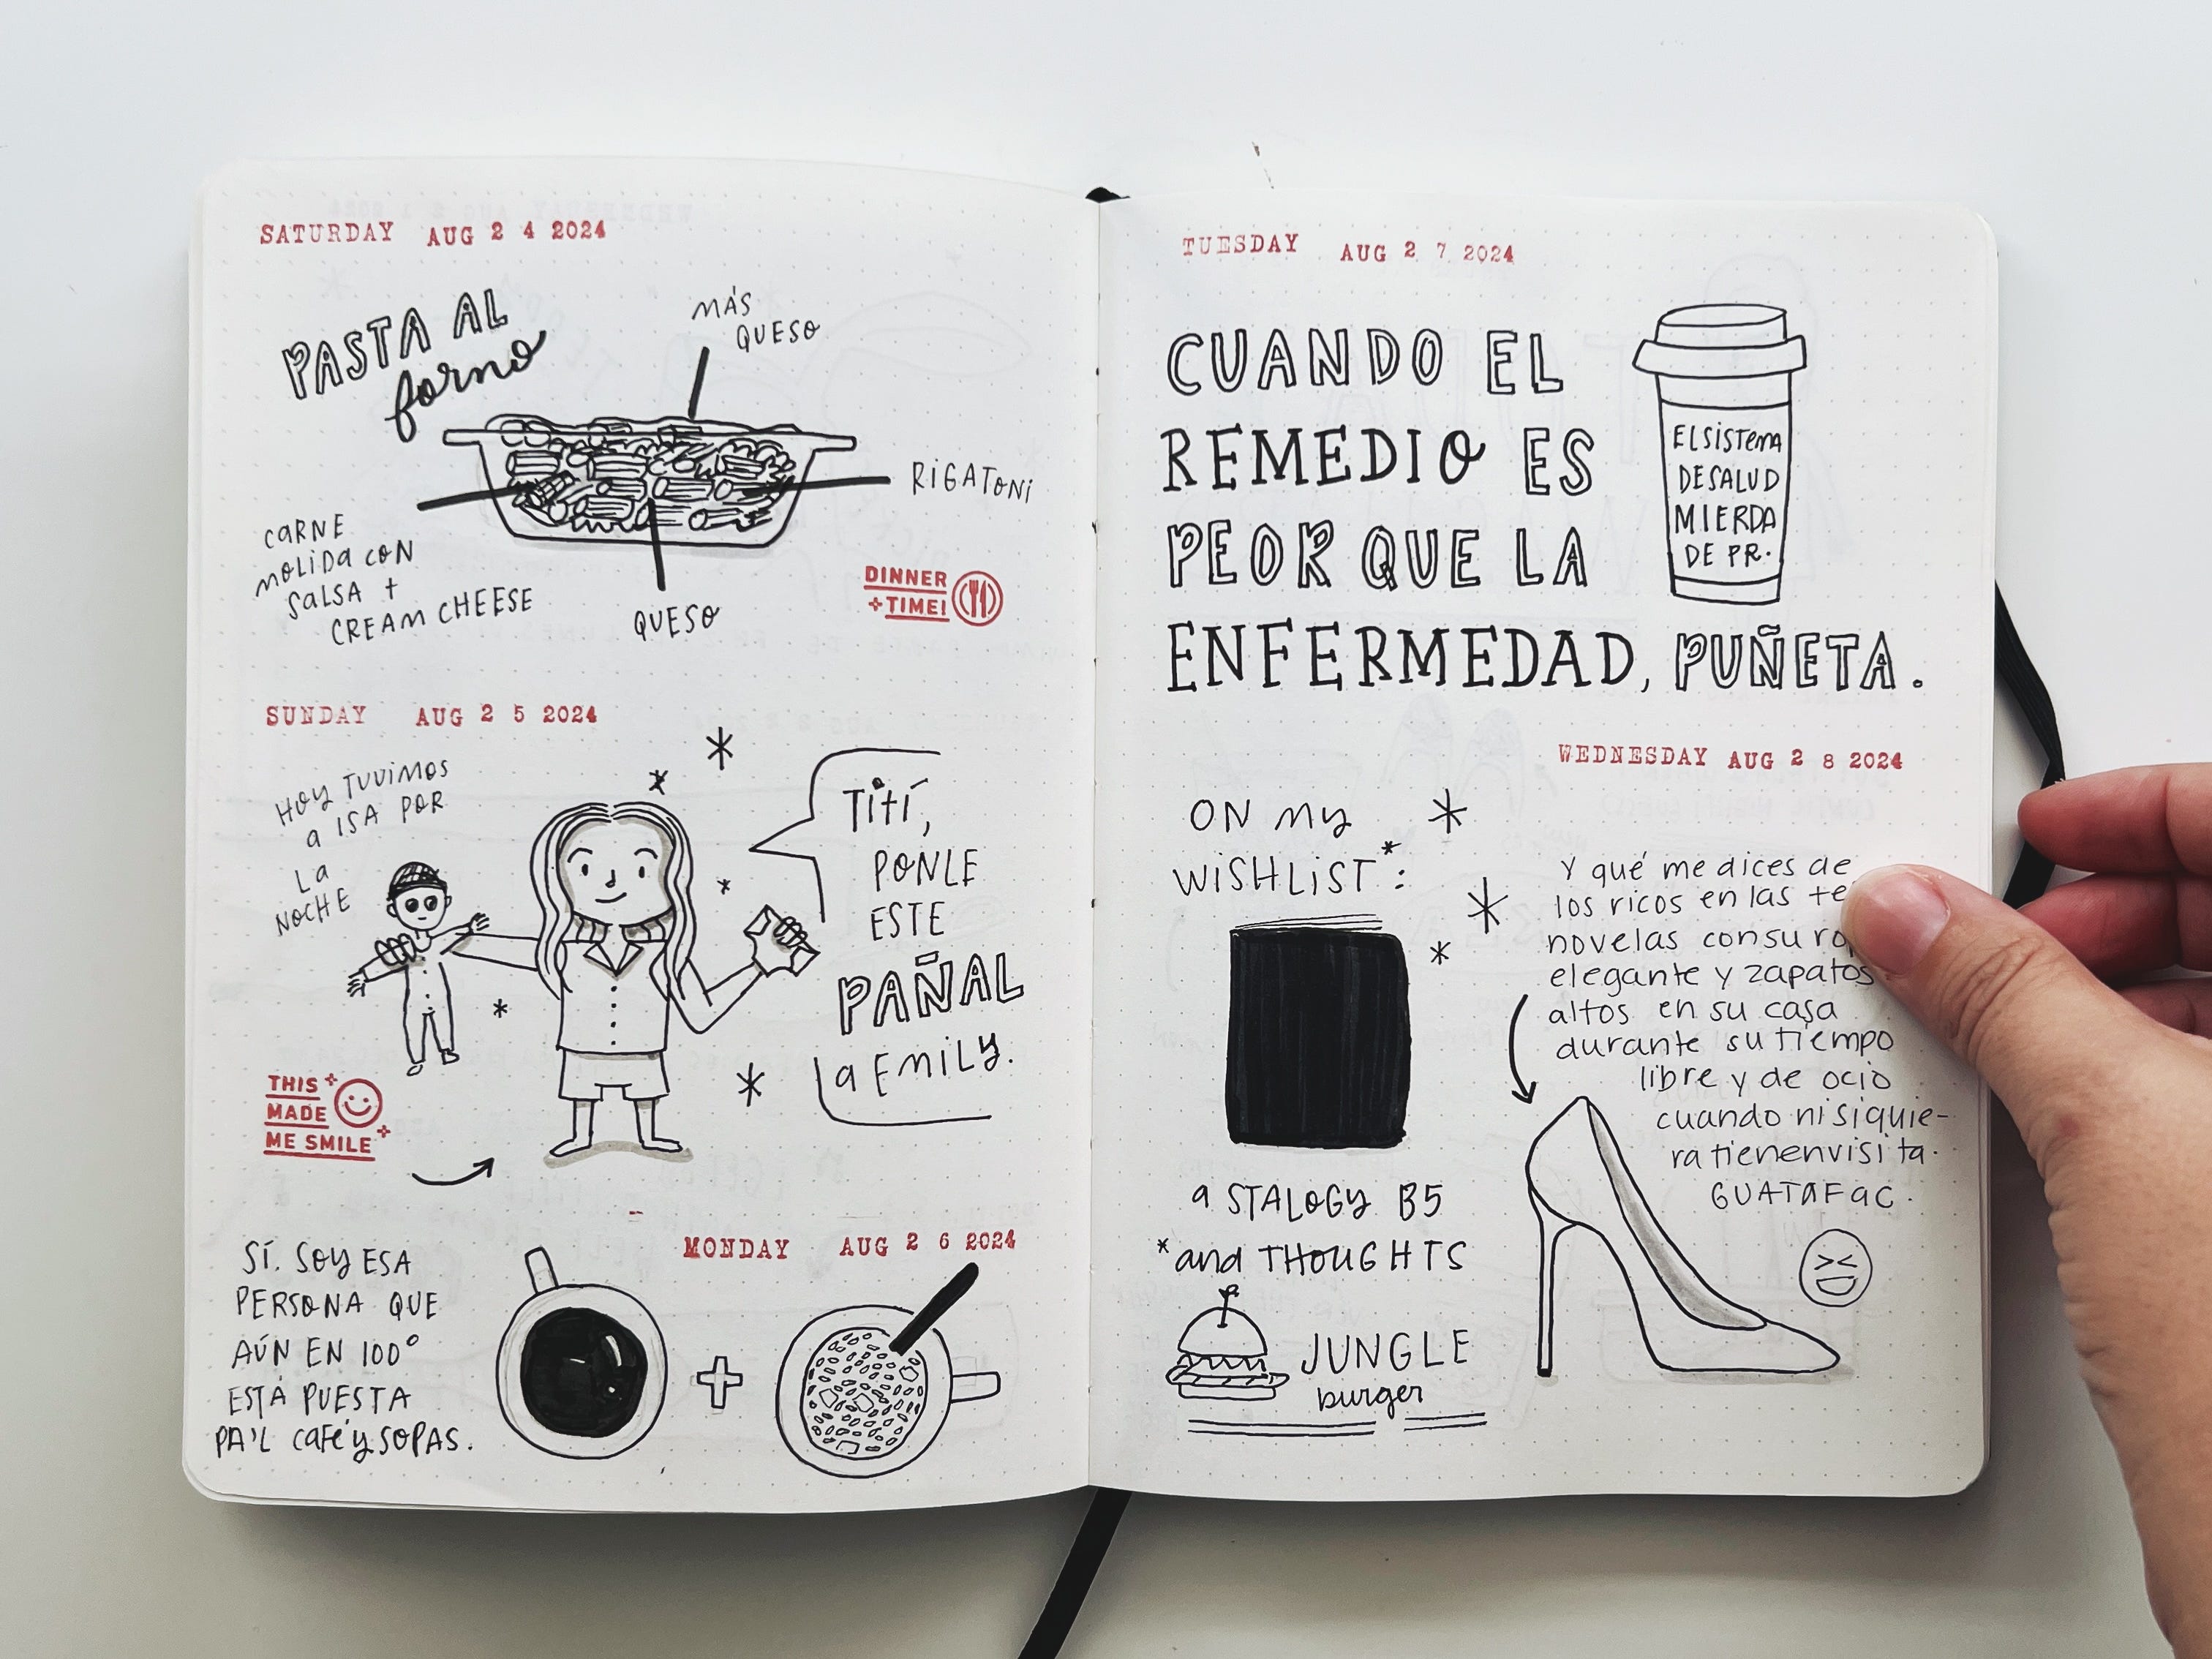 SATURDAY AUG 2 4 2024
PASTA AL
forno
MÁS
QUESO
RIGATONI
CARNE
MOLIDA CON
SALSA +
CREAM CHEESE
QUESO
DINNER
TIME!
SUNDAY AUG 2 5 2024
HOY TUVIMOS
a ISA POR
LA
NOCHE
Tití,
PONLE
ESTE
PAÑAL
a EMILY.
THIS
MADE
ME SMILE
MONDAY AUG 2 6 2024
SÍ. SOY ESA
PERSONA QUE
AÚN EN 100°
ESTÁ PUESTA
PA'L CAFÉ Y SOPAS.
TUESDAY AUG 2 7 2024
CUANDO EL
REMEDIO ES
PEOR QUE LA
ENFERMEDAD, PUÑETA.
EL SISTEMA
DE SALUD
MIERDA
DE PR.
WEDNESDAY AUG 2 8 2024
ON MY
WISHLIST*:
a STALOGY B5
*and THOUGHTS
JUNGLE
burger
Y qué me dices de
los ricos en las
novelas con su
elegante y zapatos
altos en su casa
durante su tiempo
libre y de ocio
cuando ni siquie-
ra tienen visita.
GUATAFAC.